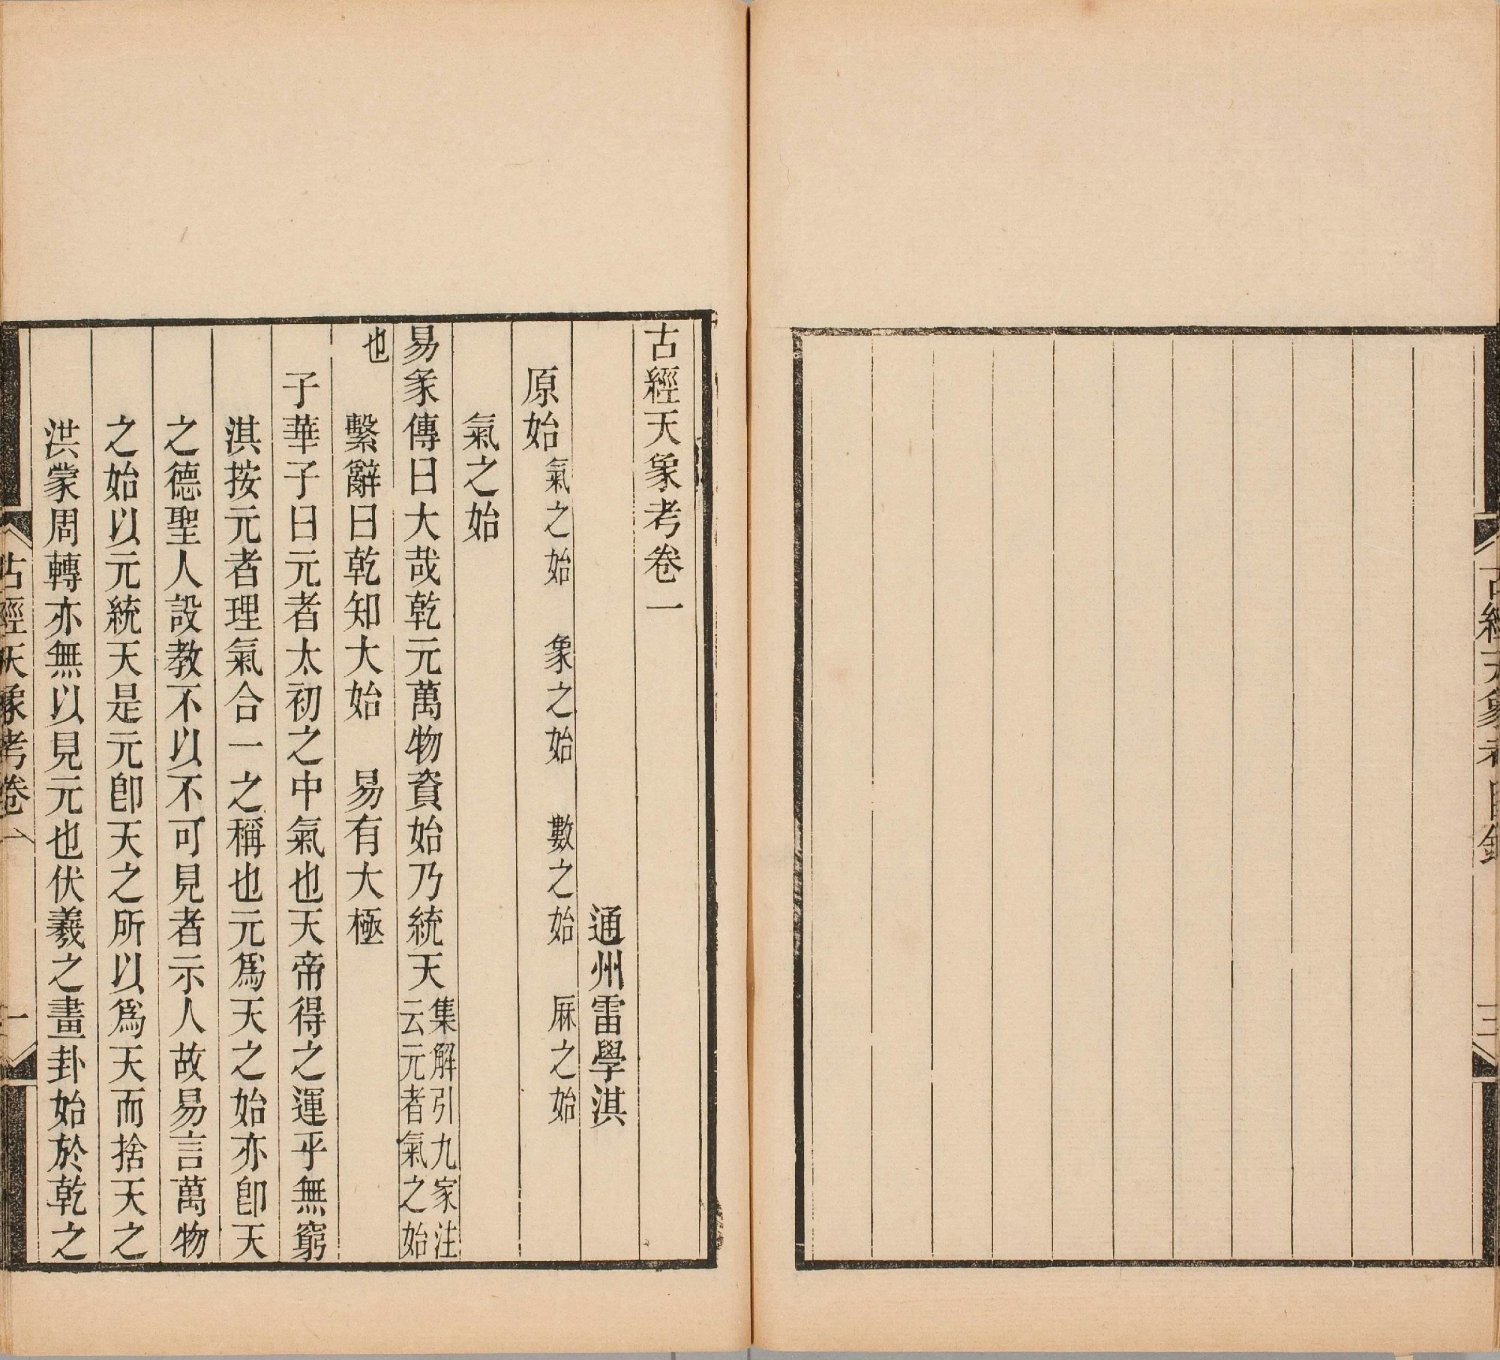 古經天象考目錄
三
古經天象考卷一
通州雷學淇
原始 氣之始 象之始 數之始 厤之始
氣之始
易彖傳曰大哉乾元萬物資始乃統天集解引九家注云元者氣之始
也 繫辭曰乾知大始 易有大極
子華子曰元者太初之中氣也天帝得之運乎無窮
淇按元者理氣合一之稱也元爲天之始亦卽天
之德聖人設教不以不可見者示人故易言萬物
之始以元統天是元卽天之所以爲天而捨天之
洪蒙周轉亦無以見元也伏羲之畫卦始於乾之
古經天象考卷一
一